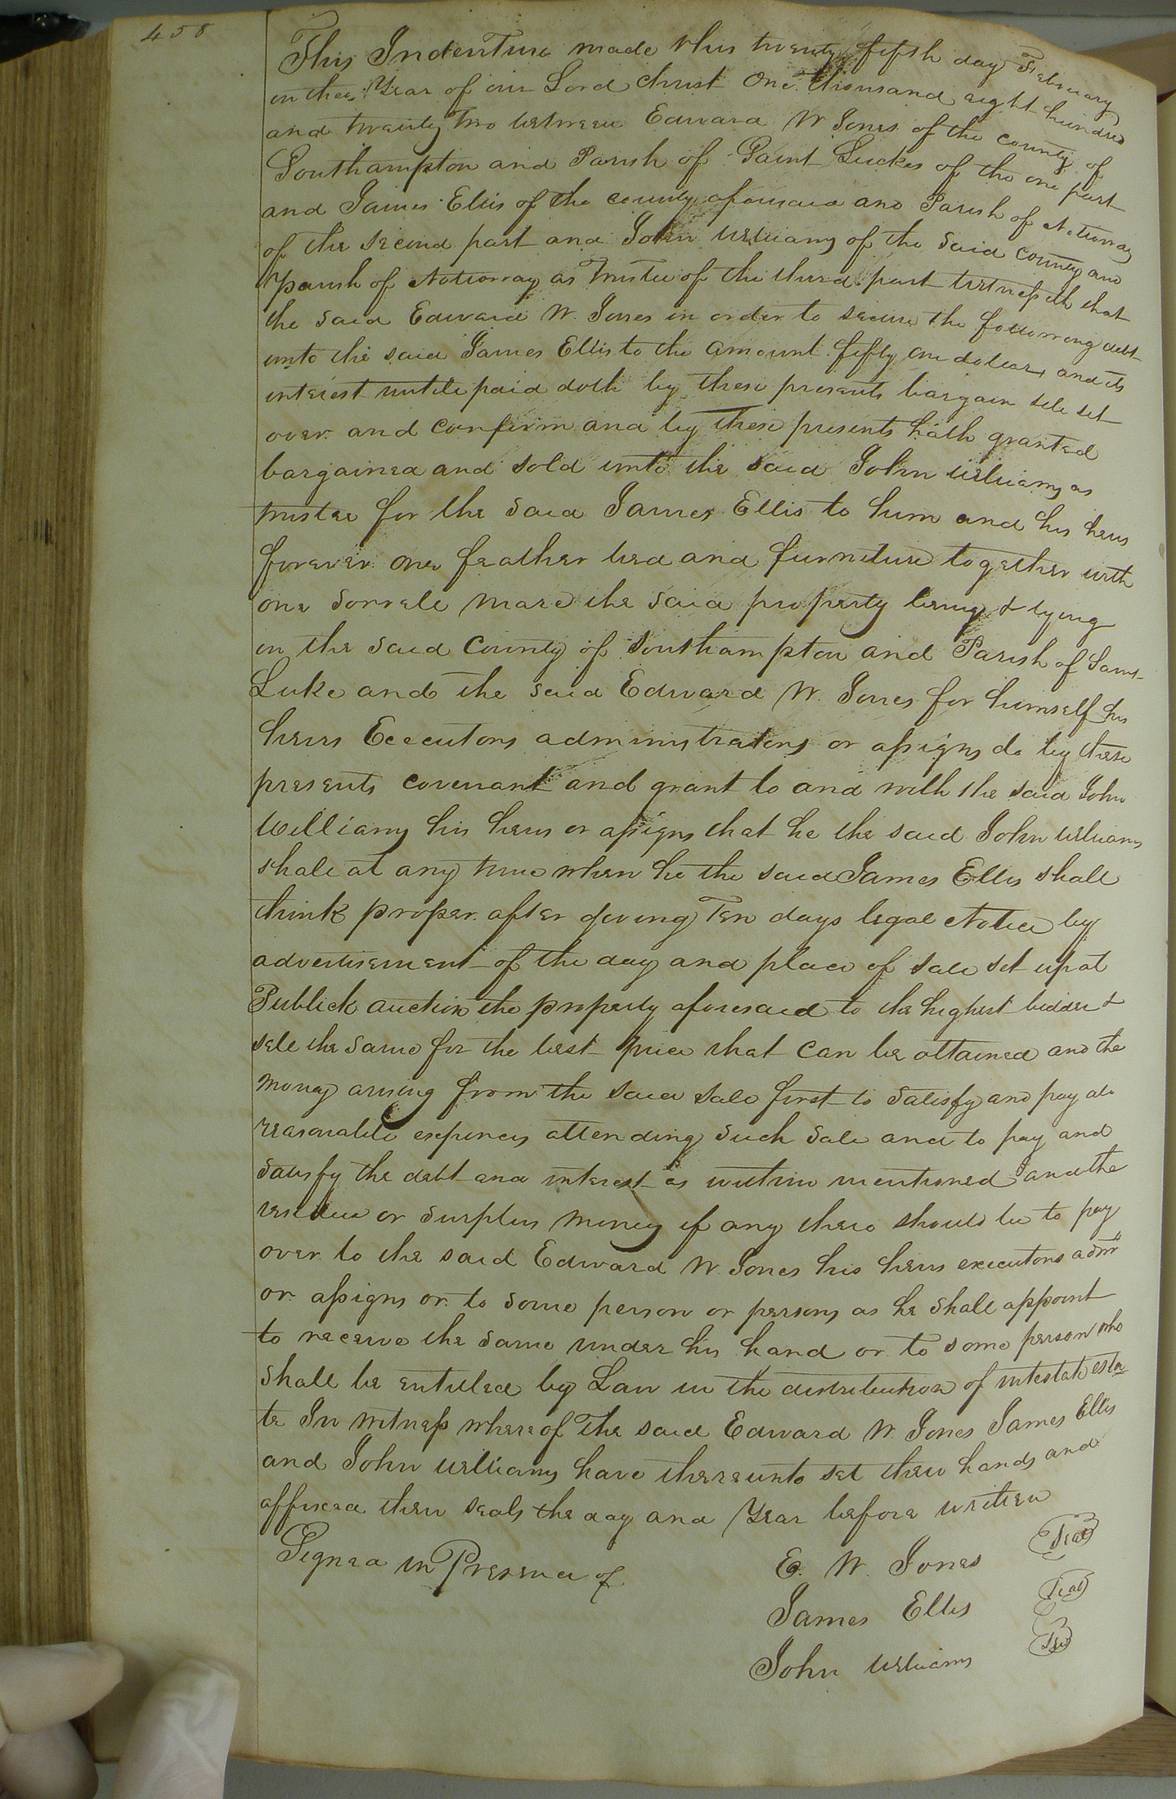 458
This Indenture made this twenty fifth day February
in the Year of our Lord Christ One thousand eight hundred
and twenty two between Edward W Jones of the county of
Southampton and Parish of Saint Luckes of the one part
and James Ellis of the county aforesaid and Parish of Notterway
of the second part and John Williams of the said county and
parish of Notioway as Trustee of the third part Witnesseth that
the said Edward W. Jones in order to secure the following debt
unto the said James Ellis to the amount fifty one dollars and its
interest untill paid doth by these presents bargain sell set
over and confirm and by these presents hath granted
bargained and sold unto the said John Williams as
trustee for the said James Ellis to him and his heirs
forever one feather bed and furniture together with
one sorrell mare the said property being & lying
in the said County of Southampton and Parish of Saint
Luke and the said Edward W. Jones for himself his
heirs Executors administrators or assigns do by these
presents covenant and grant to and with the said John
Williams his heirs or assigns that he the said John Williams
shall at any time when he the said James Ellis shall
think proper after giving Ten days legal Notice by
advertisement of the day and place of sale set up at
Publick auction the property aforesaid to the highest bidder &
sell the same for the best price that can be attained and the
money arising from the said sale first to satisfy and pay all
reasonable expences attending such sale and to pay and
satisfy the debt and interest as within mentioned and the
residue or surplus money if any there should be to pay
over to the said Edward W Jones his heirs executors admr
or assigns or to some person or persons as he shall appoint
to receive the same under his hand or to some person who
shall be entitled by Law in the distribution of intestate esta
te In witness whereof The said Edward W Jones James Ellis
and John Williams have thereunto set their hands and
affixed their seals the day and Year before written
Signed in Presence of
E. W. Jones Seal
James Ellis Seal
John Williams Seal